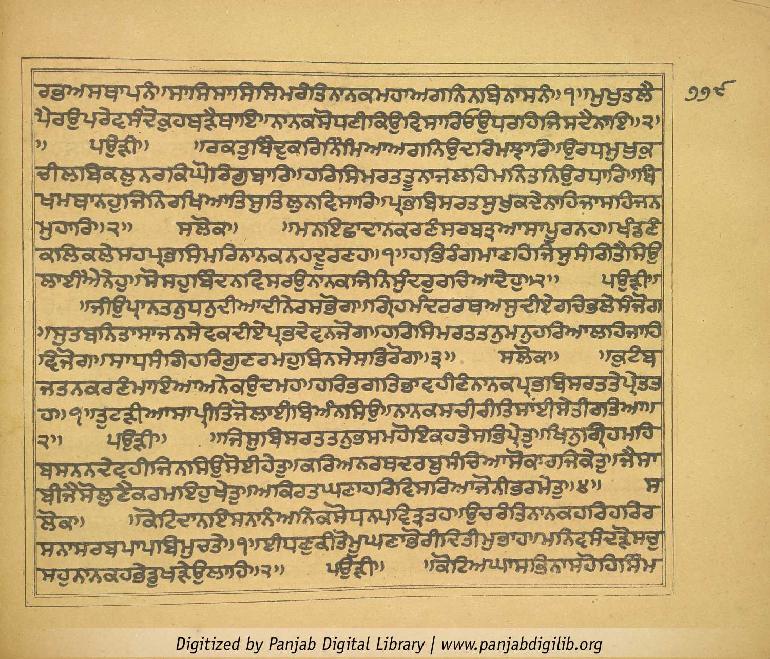 ਰਭਅਸਥਾਪਨੰ॥ਸਾਸਿਸਾਸਿਸਿਮਰੰਤਿਨਾਨਕਮਹਾਅਗਨਿਨਬਿਨਾਸਨੰ॥੧॥ਮੁਖੁਤਲੈ
ਪੈਰਉਪਰੇਵਸੰਦੋਕੁਹਥੜੈਥਾਇ॥ਨਾਨਕਸੋਧਣੀਕਿਉਵਿਸਾਰਿਓਉਧਰਹਿਜਿਸਦੈਨਾਇ॥੨
॥ ਪਉੜੀ॥ ॥ਰਕਤੁਬਿੰਦੁਕਰਿਨਿੰਮਿਆਅਗਨਿਉਦਰਮਝਾਰਿ॥ਉਰਧਮੁਖੁਕੁ
ਚੀਲਬਿਕਲੁਨਰਕਿਘੋਰਿਗੁਬਾਰਿ॥ਹਰਿਸਿਮਰਤਤੂਨਾਜਲਹਿਮਨਿਤਨਿਉਰਧਾਰਿ॥ਬਿ
ਖਮਥਾਨਹੁਜਿਨਿਰਖਿਆਤਿਸੁਤਿਲੁਨਵਿਸਾਰਿ॥ਪ੍ਰਭਬਿਸਰਤਸੁਖੁਕਦੇਨਾਹਿਜਾਸਹਿਜਨ
ਮੁਹਾਰਿ॥੨॥ ਸਲੋਕ॥ ॥ਮਨਇਛਾਦਾਨਕਰਣੰਸਰਬਤ੍ਰਆਸਾਪੂਰਨਹ॥ਖੰਡਣੰ
ਕਲਿਕਲੇਸਹਪ੍ਰਭਸਿਮਰਿਨਾਨਕਨਹਦੂਰਣਹ॥੧॥ਹਭਿਰੰਗਮਾਣਹਿਜਿਸੁਸੰਗਿਤੈਸਿਉ
ਲਾਈਐਨੇਹੁ॥ਸੋਸਹੁਬਿੰਦਨਵਿਸਰਉਨਾਨਕਜਿਨਿਸੁੰਦਰੁਰਚਿਆਦੇਹੁ॥੨॥ ਪਉੜੀ॥
॥ਜੀਉਪ੍ਰਾਨਤਨੁਧਨੁਦੀਆਦੀਨੇਰਸਭੋਗ॥ਗ੍ਰਿਹਮੰਦਰਰਥਅਸੁਦੀਏਰਚਿਭਲੇਸੰਜੋਗ
॥ਸੁਤਬਨਿਤਾਸਾਜਨਸੇਵਕਦੀਏਪ੍ਰਭਦੇਵਨਜੋਗ॥ਹਰਿਸਿਮਰਤਤਨੁਮਨੁਹਰਿਆਲਹਿਜਾਹਿ
ਵਿਜੋਗ॥ਸਾਧਸੰਗਿਹਰਿਗੁਣਰਮਹੁਬਿਨਸੇਸਭਿਰੋਗ॥੩॥ ਸਲੋਕ॥ ॥ਕੁਟੰਬ
ਜਤਨਕਰਣੰਮਾਇਆਅਨੇਕਉਦਮਹ॥ਹਰਿਭਗਤਿਭਾਵਹੀਣੰਨਾਨਕਪ੍ਰਭਬਿਸਰਤਤੇਪ੍ਰੇਤਤ
ਹ॥੧॥ਤੁਟੜੀਆਸਾਪ੍ਰੀਤਿਜੋਲਾਈਬਿਅੰਨਸਿਉ॥ਨਾਨਕਸਚੀਰੀਤਿਸਾਂਈਸੇਤੀਰਤਿਆ॥
੨॥ ਪਉੜੀ॥ ॥ਜਿਸੁਬਿਸਰਤਤਨੁਭਸਮਹੋਇਕਹਤੇਸਭਿਪ੍ਰੇਤੁ॥ਖਿਨੁਗ੍ਰਿਹਮਹਿ
ਬਸਨਨਦੇਵਹੀਜਿਨਸਿਉਸੋਈਹੇਤੁ॥ਕਰਿਅਨਰਥਦਰਬੁਸੰਚਿਆਸੋਕਾਰਜਿਕੇਤੁ॥ਜੈਸਾ
ਬੀਜੈਸੋਲੁਣੈਕਰਮਇਹੁਖੇਤੁ॥ਅਕਿਰਤਘਣਾਹਰਿਵਿਸਰਿਆਜੋਨੀਭਰਮੇਤੁ॥੪॥ ਸ
ਲੋਕ॥ ॥ਕੋਟਿਦਾਨਇਸਨਾਨੰਅਨਿਕਸੋਧਨਪਵਿਤ੍ਰਤਹ॥ਉਚਰੰਤਿਨਾਨਕਹਰਿਹਰਿਰ
ਸਨਾਸਰਬਪਾਪਬਿਮੁਚਤੇ॥੧॥ਈਧਣੁਕੀਤੋਮੂਘਣਾਭੋਰੀਦਿਤੀਮੁਭਾਹਿ॥ਮਨਿਵਸੰਦੜੋਸਚੁ
ਸਹੁਨਾਨਕਹਭੇਡੁਖੜੇਉਲਾਹਿ॥੨॥ ਪਉੜੀ॥ ॥ਕੋਟਿਅਘਸਭਿਨਾਸਹੋਹਿਸਿਮ
੭੭੬
Digitized by Panjab Digital Library | www.panjabdigilib.org